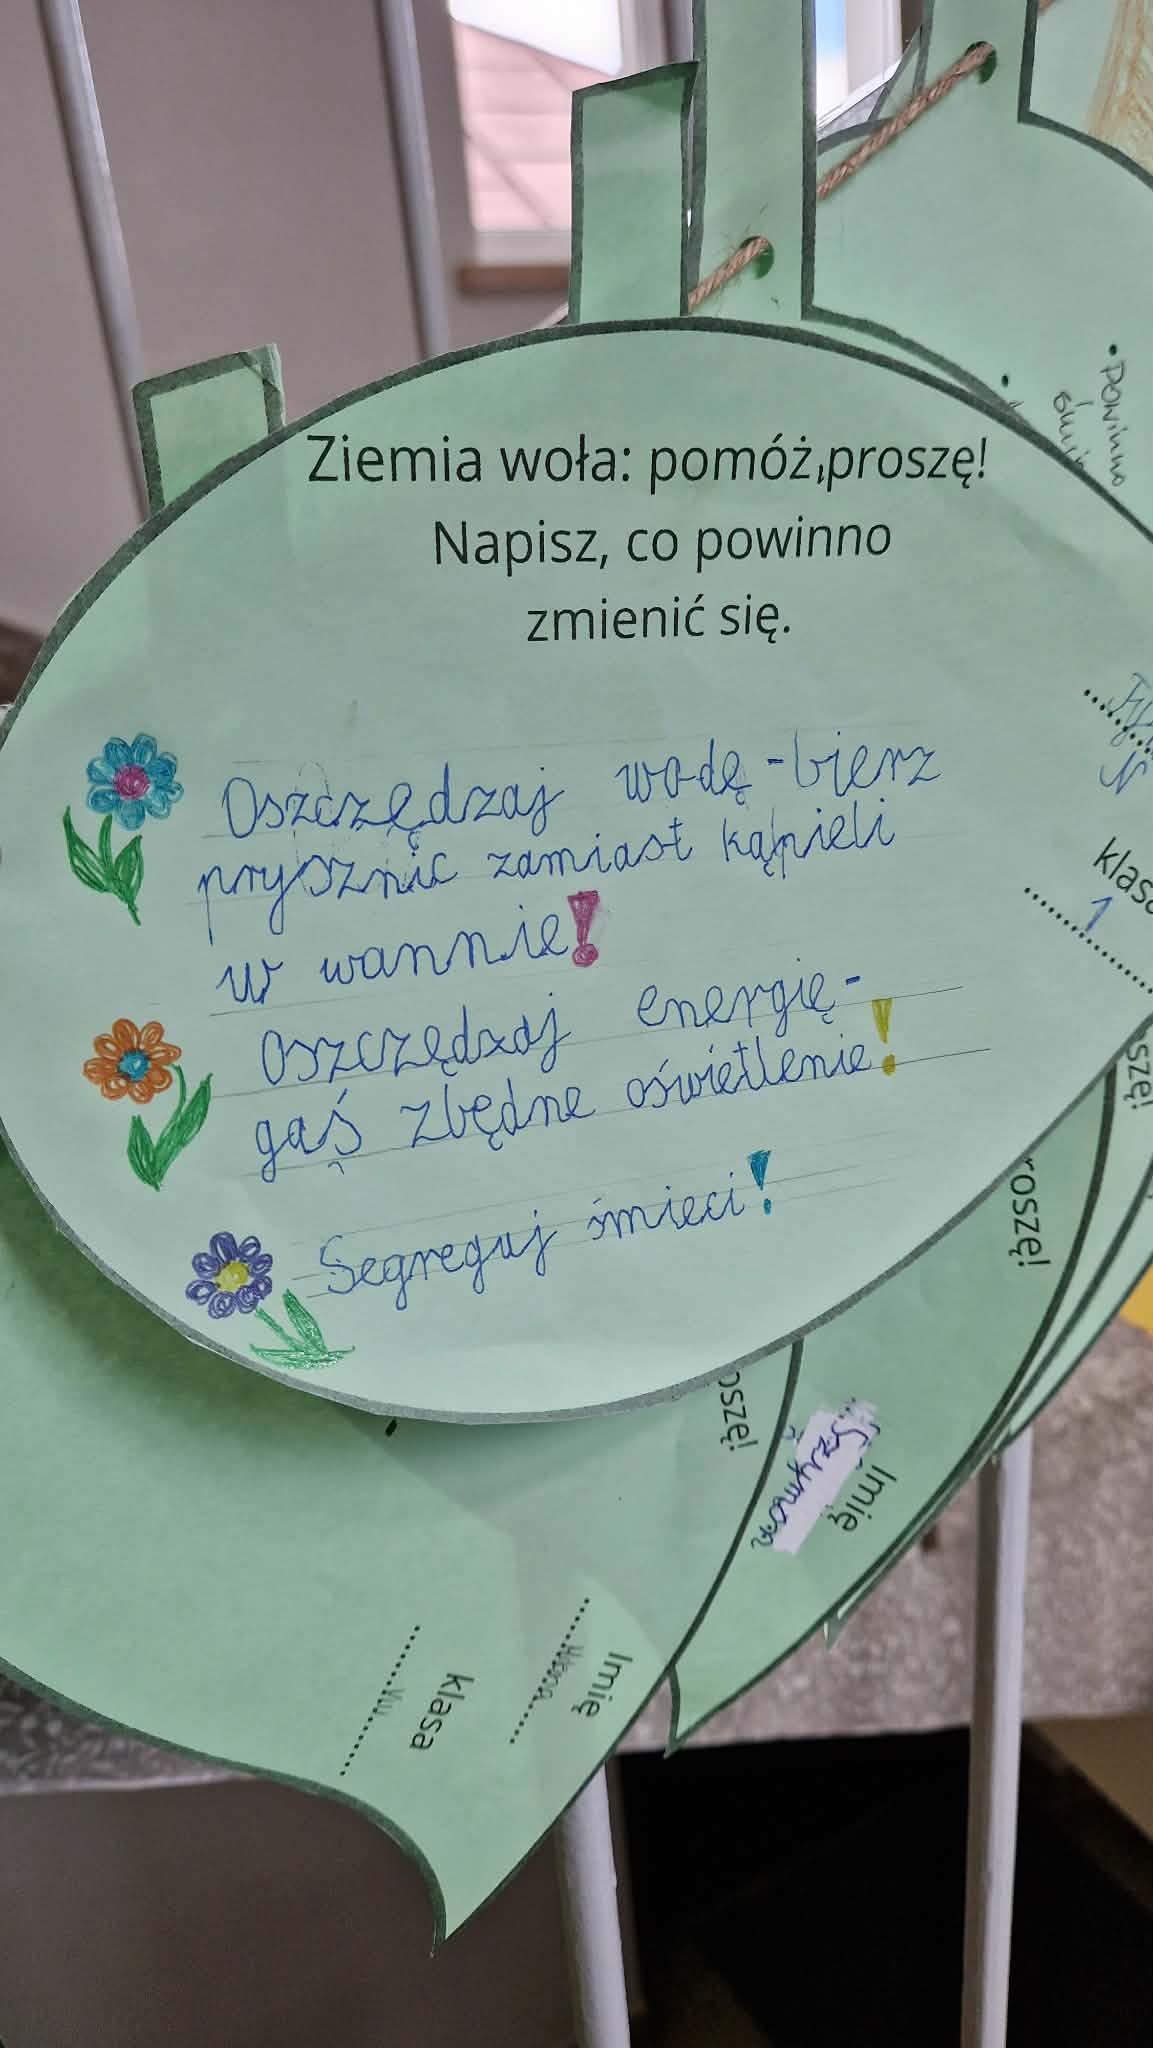 Ziemia woła: pomóż, proszę!
Napisz, co powinno
zmienić się.
Oszczędzaj wodę - bierz
prysznic zamiast kąpieli
w wannie!
Oszczędzaj energię -
gaś zbędne oświetlenie!
Segreguj śmieci!
• powinno
klasa
1
szę!
roszę!
oszę!
Imię
Szymon
Imię
klasa
VIII